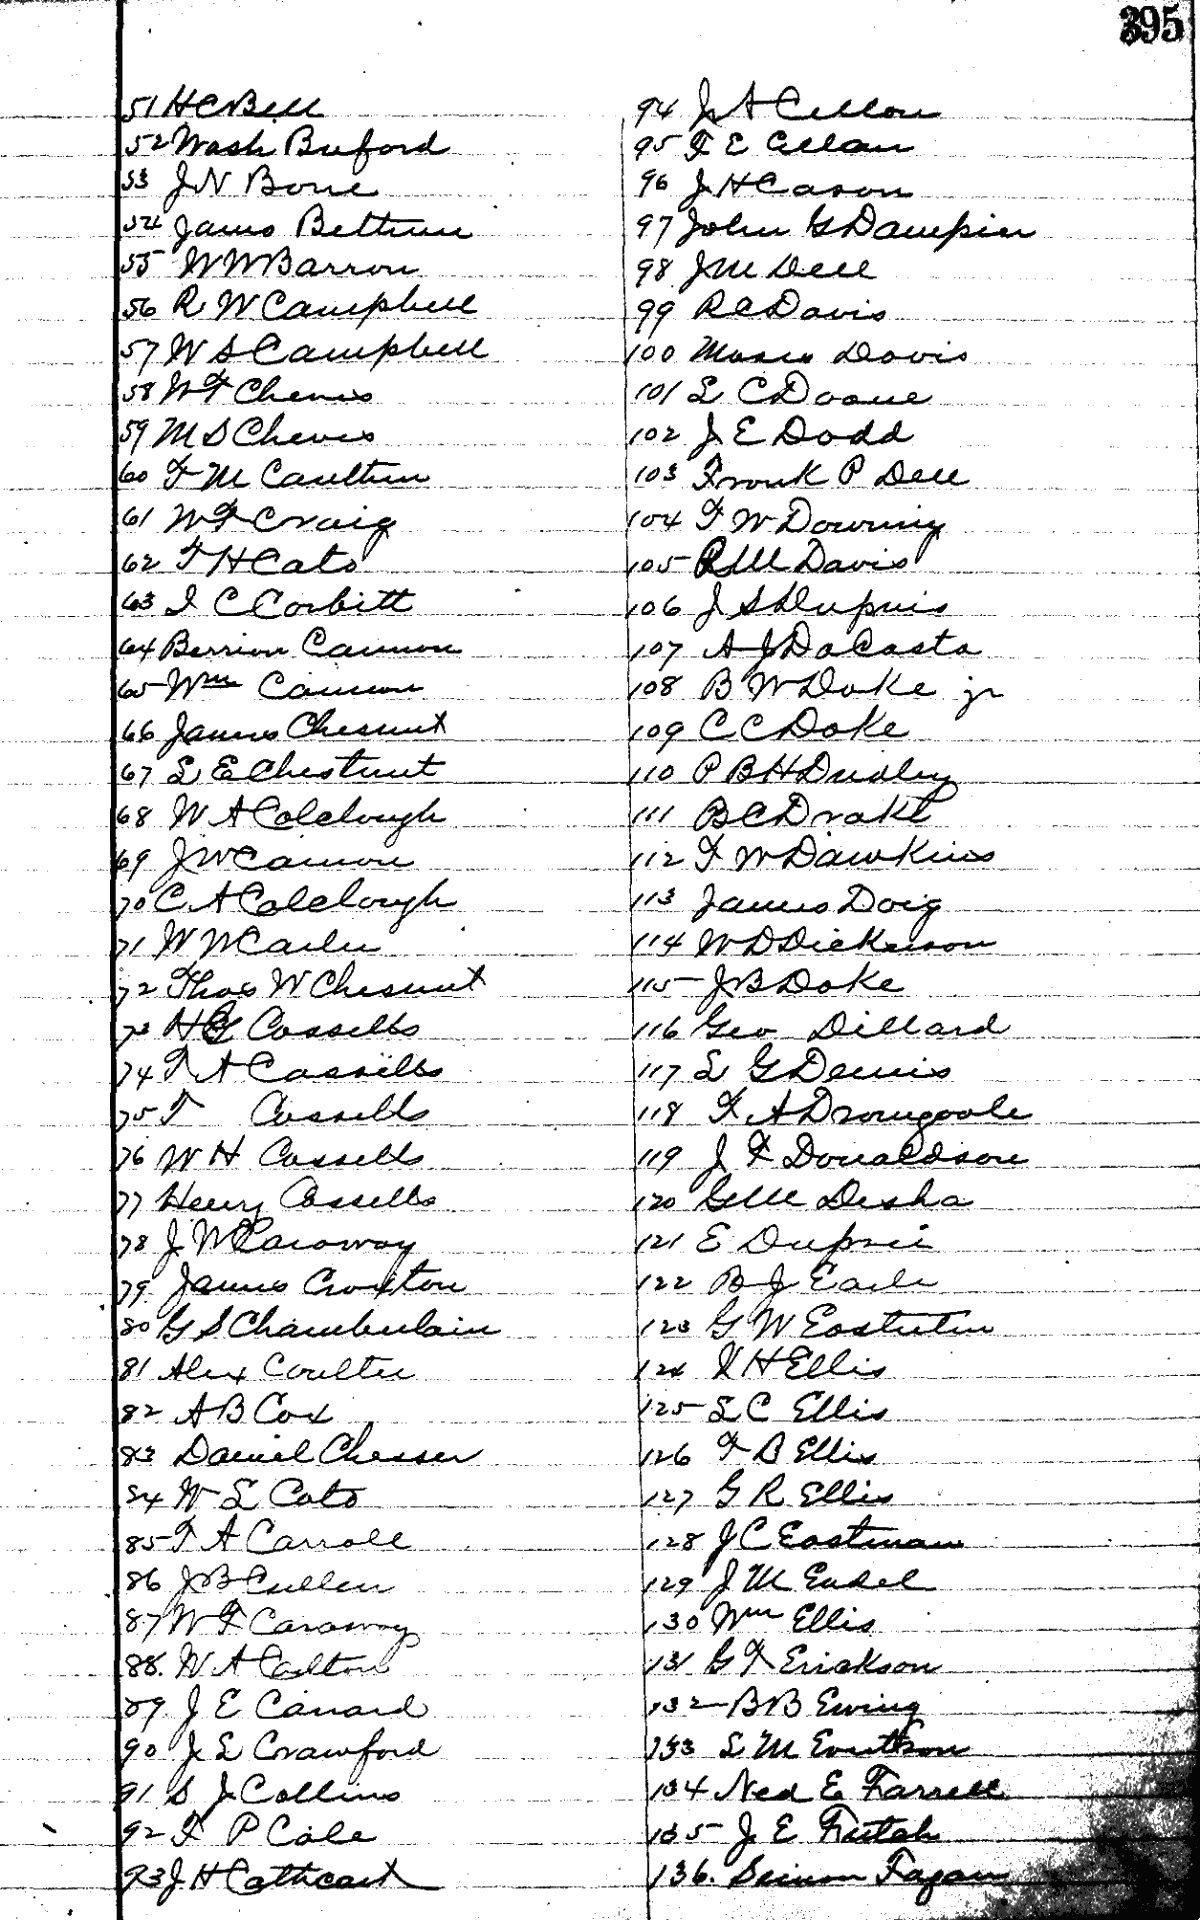 395
51 H C Bell
52 Wash Buford
53 J N Bone
54 James Bethune
55 W W Barron
56 R W Campbell
57 W S Campbell
58 W F Cheves
59 M S Cheves
60 F M Caulthen
61 W F Craig
62 F H Cato
63 I C Corbitt
64 Berrion Cannon
65 Wm Cannon
66 James Chesnut
67 L E Chestnut
68 W A Colclough
69 J W Cannon
70 C A Colclough
71 W W Carter
72 Thos W Chesnut
73 H G Cassells
74 F A Cassells
75 F Cassells
76 W H Cassells
77 Henry Cassells
78 J W Caraway
79 James Croxton
80 G S Chamberlain
81 Alex Coulter
82 A B Cox
83 Daniel Chesser
84 W L Cato
85 F A Carroll
86 J B Cullen
87 W F Caraway
88. W A Colton
89 J E Canard
90 J L Crawford
91 S J Collins
92 F P Cole
93 J H Cathcart
94 J A Cellon
95 F E Cellon
96 J H Cason
97 John G Dampier
98 J M Dell
99 R C Davis
100 Moses Davis
101 L C Doane
102 J E Dodd
103 Frank P Dell
104 F W Downing
105 R M Davis
106 J S Dupuis
107 A J DaCosta
108 B W Doke jr
109 C C Doke
110 P B H Dudley
111 B C Drake
112 F W Dawkins
113 James Doig
114 W D Dickerson
115 J B Doke
116 Geo Dillard
117 L G Dennis
118 F A Dromgoole
119 J F Donaldson
120 G M Desha
121 E Dupree
122 B J Earle
123 G W Eastertin
124 K H Ellis
125 L C Ellis
126 F B Ellis
127 G R Ellis
128 J C Eastman
129 J M Endel
130 Wm Ellis
131 G F Erickson
132 B B Ewing
133 L M
134 Ned E Farrell
135 J E Futch
136. Simon Fagan